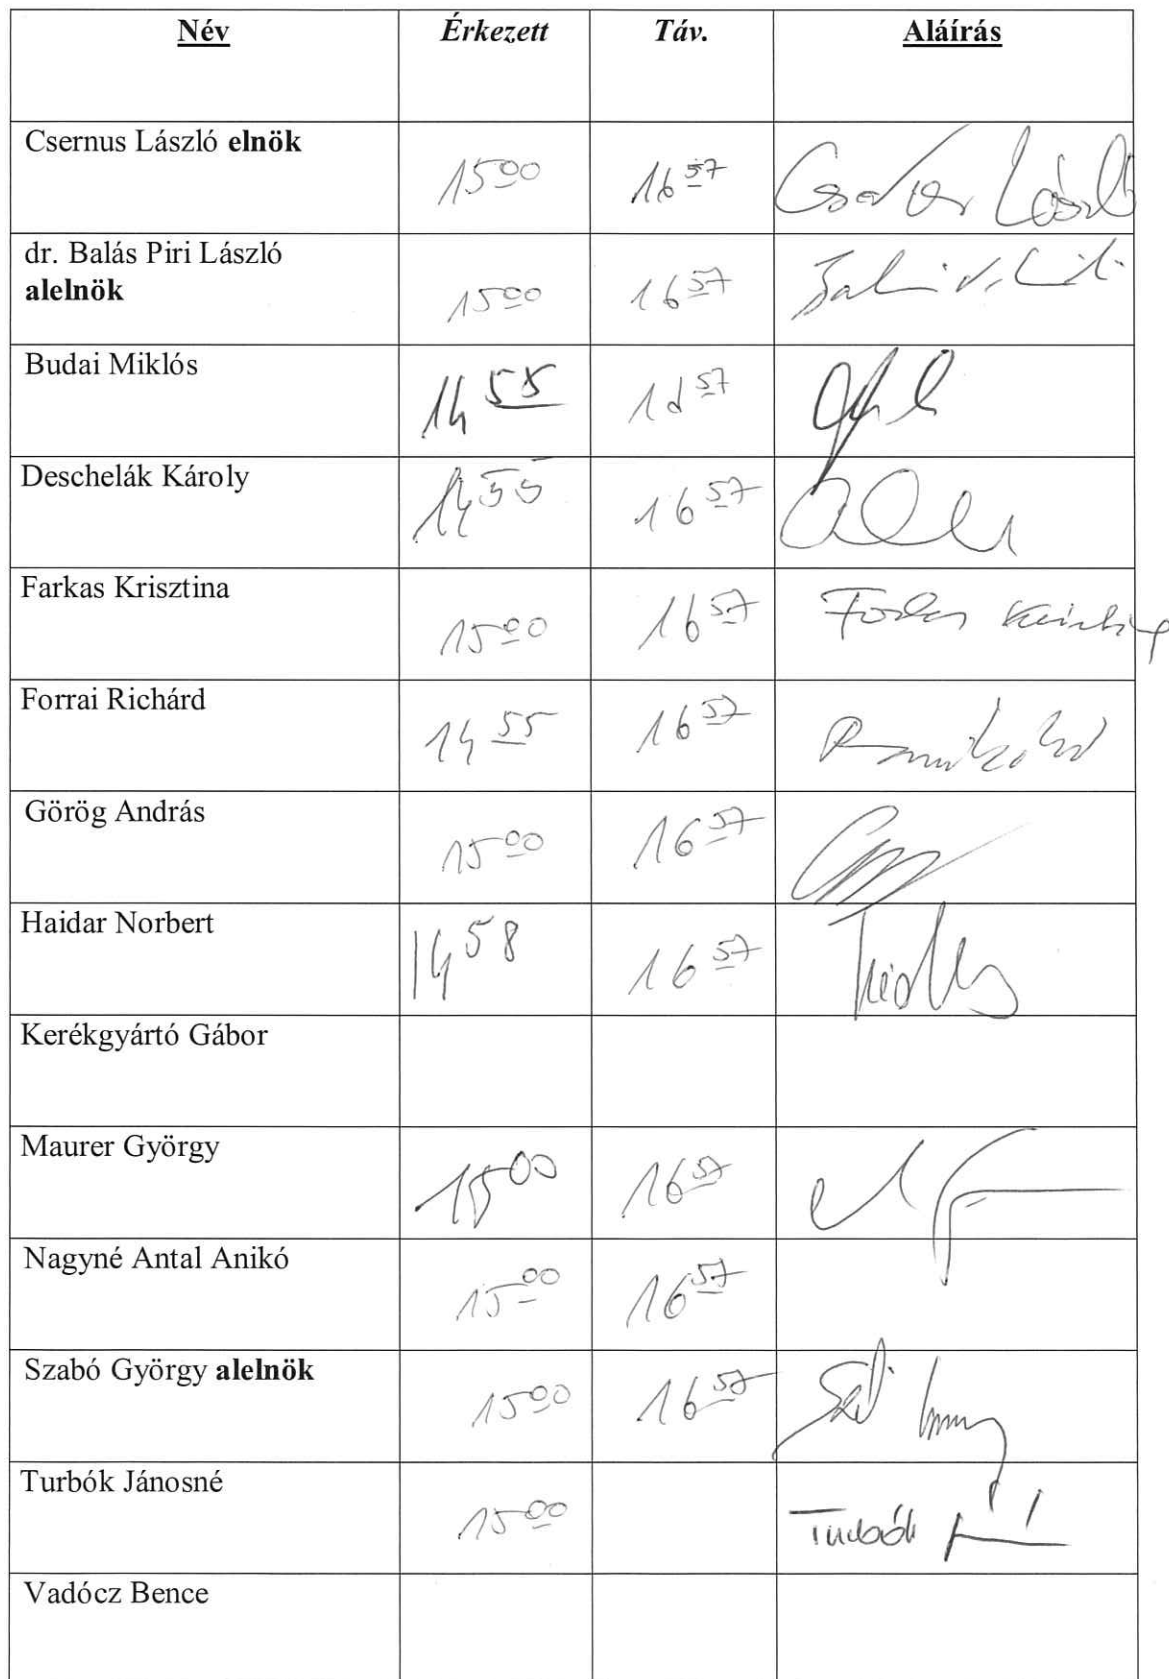 Név Érkezett Táv. Aláírás
Csernus László elnök 15 00 16 57 Csernus László
dr. Balás Piri László
alelnök 15 00 16 57
Budai Miklós 14 55 57
Deschelák Károly 14 55 16 57
Farkas Krisztina 15 00 16 57 Farkas Krisztina
Forrai Richárd 14 55 16 57
Görög András 15 00 16 57
Haidar Norbert 14 58 16 57
Kerékgyártó Gábor
Maurer György 15 00 16 57
Nagyné Antal Anikó 15 00 16 57
Szabó György alelnök 15 00 16 57
Turbók Jánosné 15 00 Turbók
Vadócz Bence